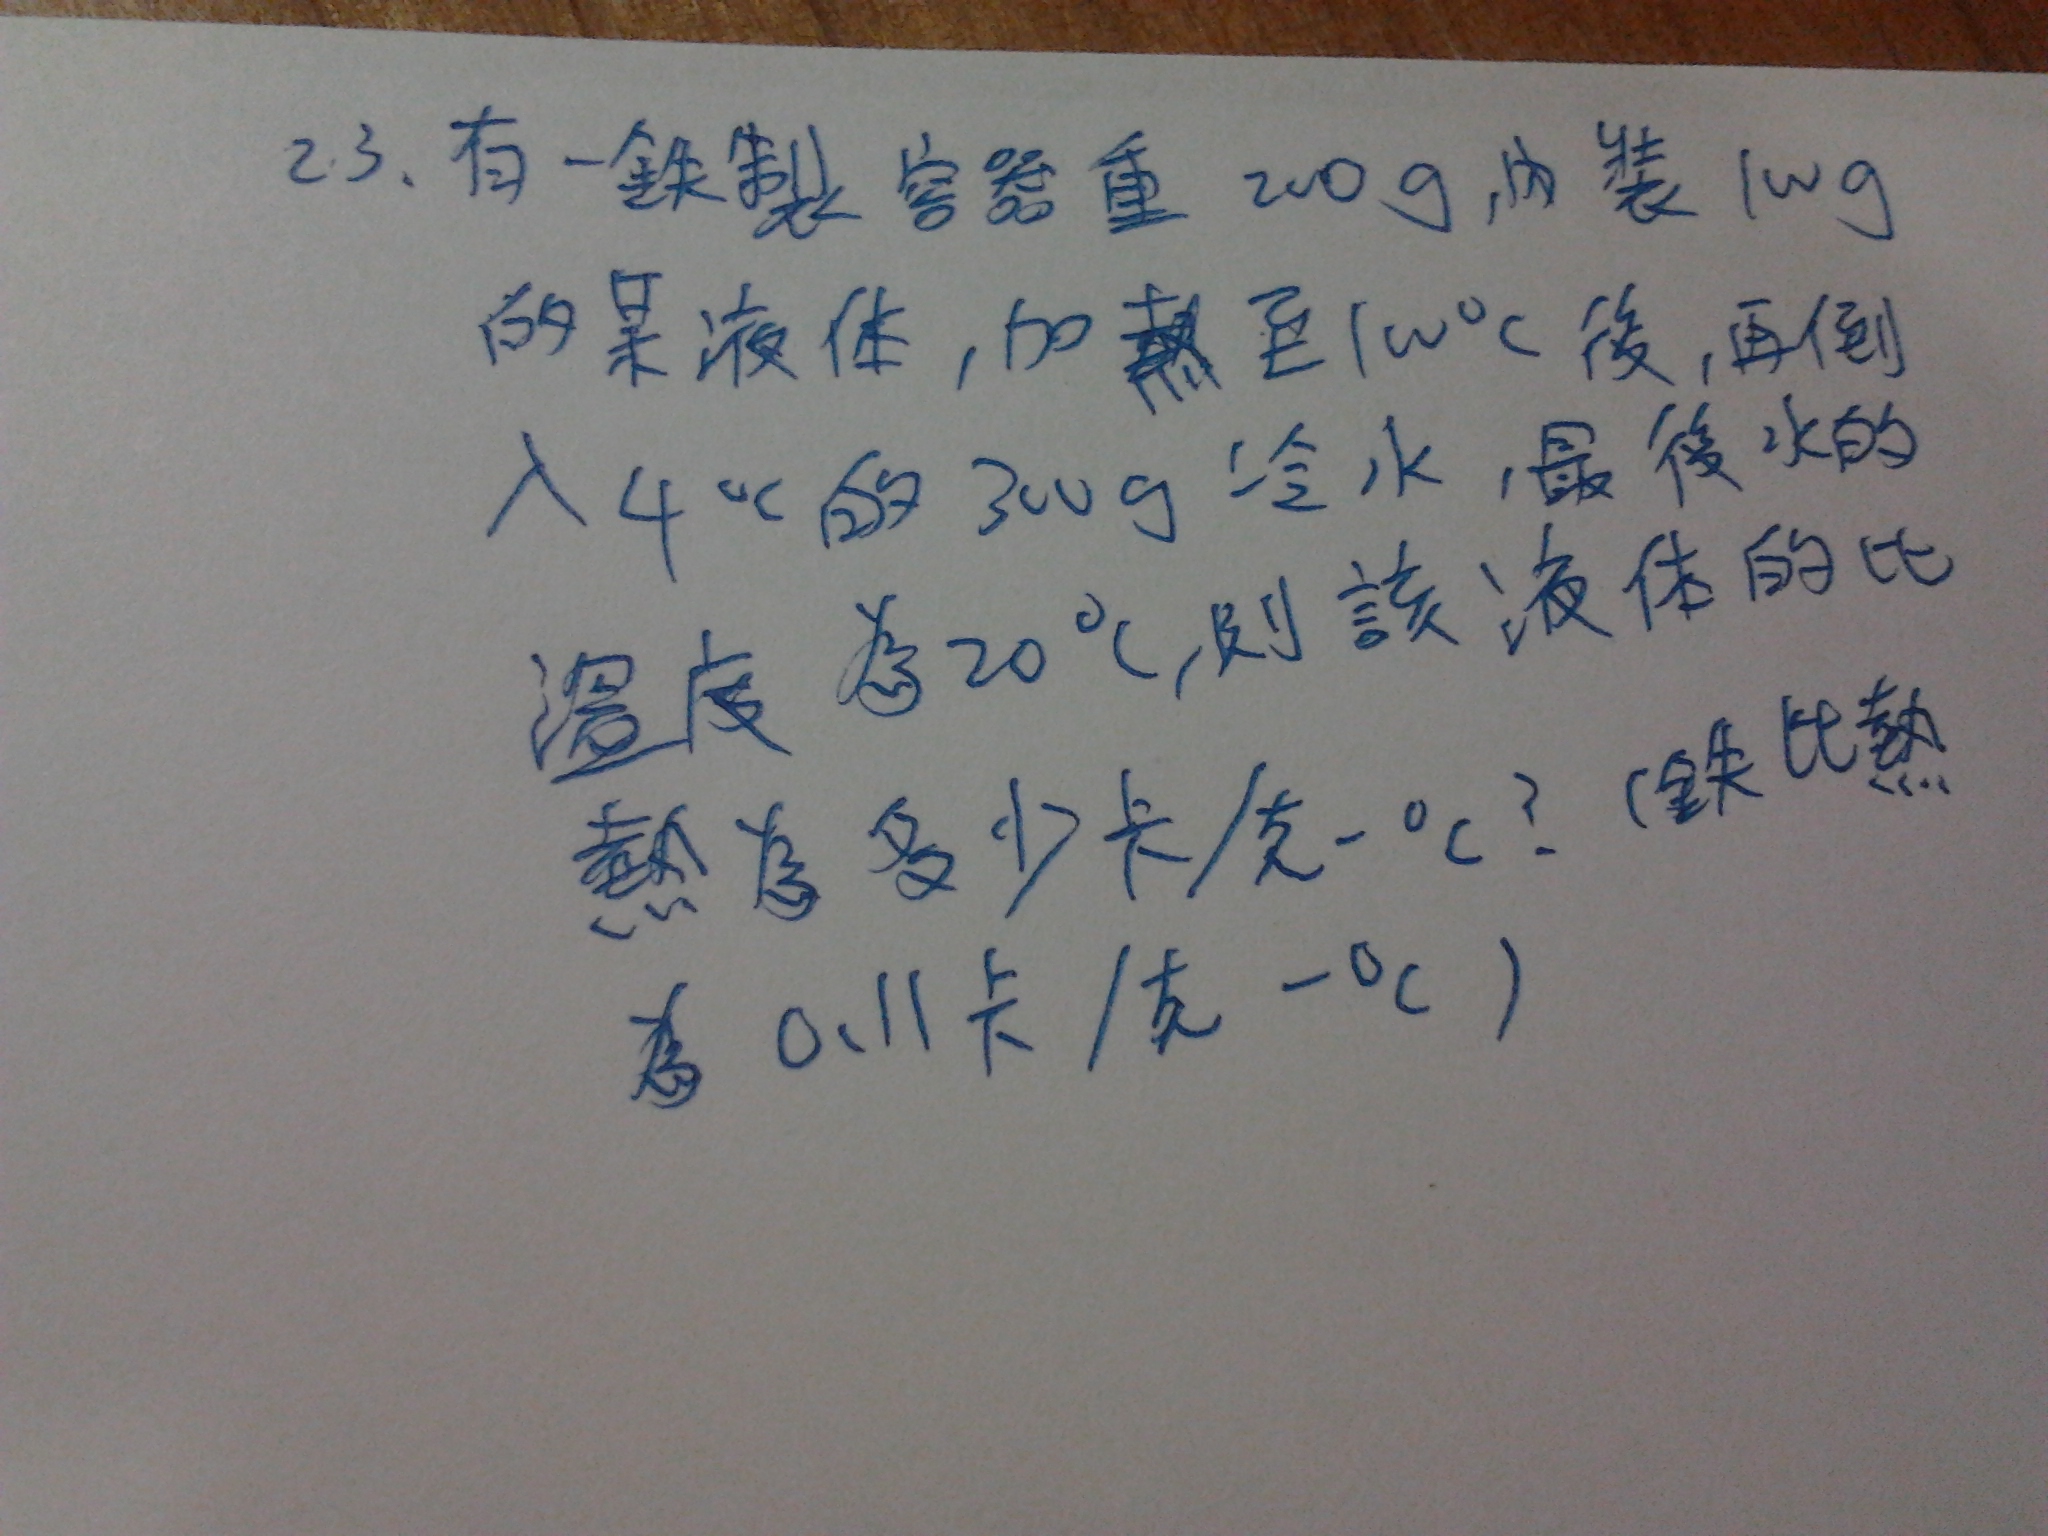 23. 有一鉄製容器重 200g, 內裝 100g
的某液体, 加熱至100°C後, 再倒
入4°C的300g冷水, 最後水的
溫度為20°C, 則該液体的比
熱為多少卡/克-°C? (鉄比熱
為 0.11卡/克-°C)